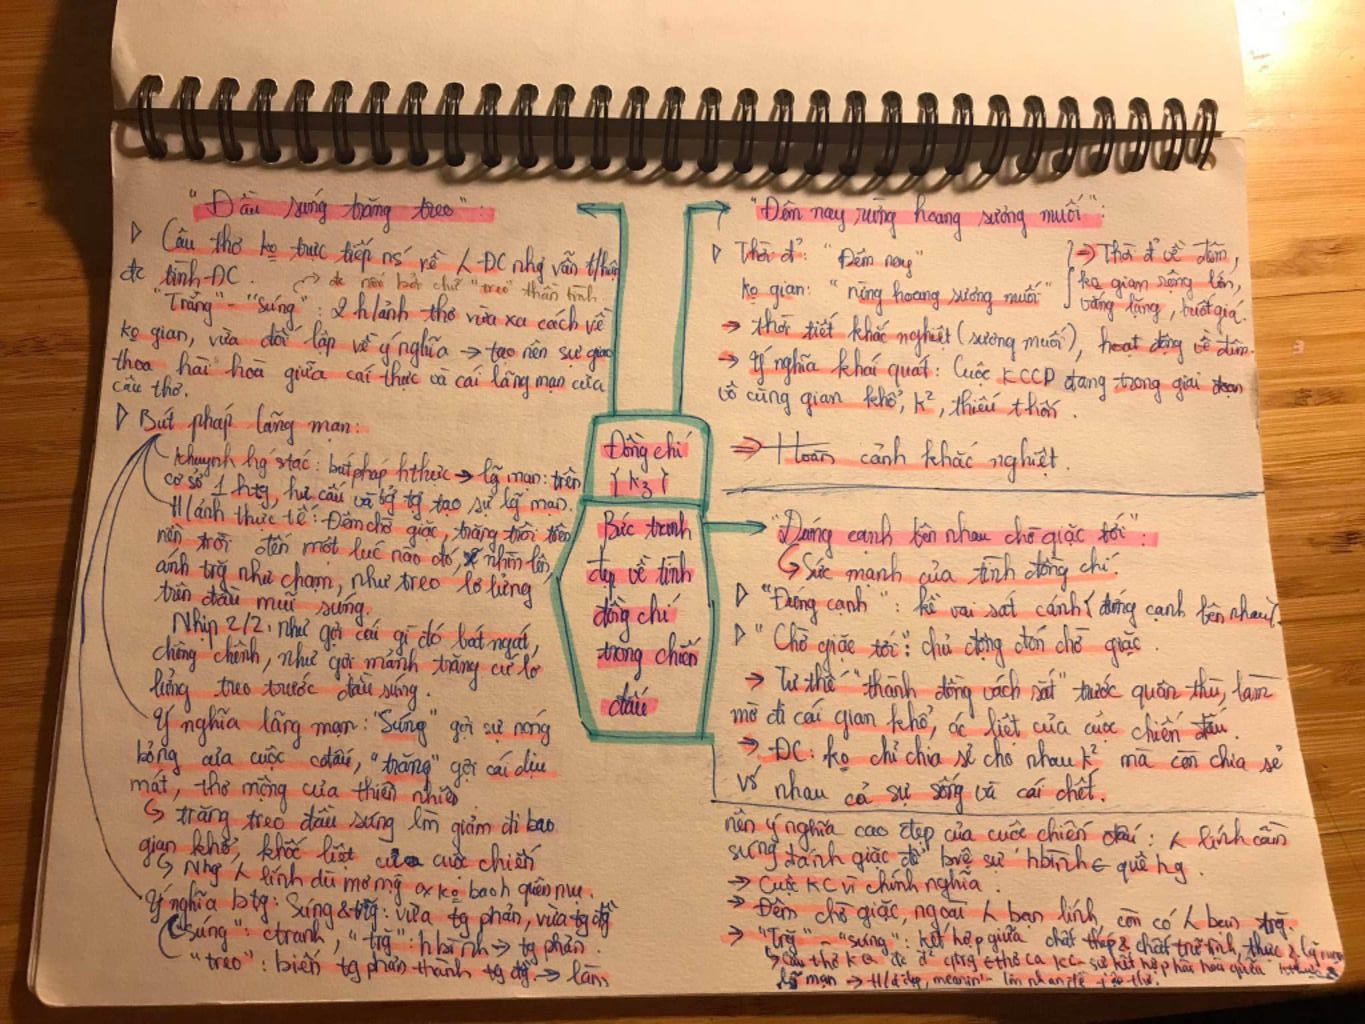 "Đầu súng trăng treo":
Câu thơ kọ trực tiếp về ĐC nhg vẫn
đc tình ĐC.
→ đc nối bởi chữ "treo" thần tình
"Trăng" - "Súng": 2 h/ảnh thơ vừa xa cách về
kọ gian, vừa đối lập về ý nghĩa → tạo nên sự giao
thoa hài hoà giữa cái thực và cái lãng mạn của
câu thơ.
Bút pháp lãng mạn:
khuynh hg stác: bút pháp hthực → lg mạn: trên
cơ sở 1 htg, hư cấu và tg tạo sự lg mạn.
H/ảnh thực tế: Đêm chờ giặc, trăng trôi trên
nền trời đến một lúc nào đó, nhìn lên,
ánh trg như chạm, như treo lơ lửng
trên đầu mũi súng.
Nhịp 2/2: như gợi cái gì đó bát ngát,
chông chênh, như gợi mảnh trăng cứ lơ
lửng treo trước đầu súng.
Ý nghĩa lãng mạn: "Súng" gợi sự nóng
bỏng của cuộc cđấu, "trăng" gợi cái dịu
mát, thơ mộng của thiên nhiên
↳ trăng treo đầu súng lm giảm đi bao
gian khổ, khốc liệt của cuộc chiến
↳ Nhg lính dù mơ mộng kọ bao h quên nvụ.
Ý nghĩa btg: Súng & trg: vừa tg phản, vừa tg đg
"súng": ctranh, "trg": hbình → tg phản.
"treo": biến tg phản thành tg đg. → làm
Đồng chí
{k3}
Bức tranh
đẹp về tình
đồng chí
trong chiến
đấu
"Đêm nay rừng hoang sương muối":
Thời đ': "Đêm nay"
kọ gian: "rừng hoang sương muối"
→ Thời đ' về đêm,
kọ gian rộng lớn,
vắng lặng, buốt giá.
→ thời tiết khắc nghiệt (sương muối), hoạt động về đêm.
→ Ý nghĩa khái quát: Cuộc KCCP đang trong giai đoạn
vô cùng gian khổ, k², thiếu thốn.
⇒ Hoàn cảnh khắc nghiệt.
"Đứng cạnh bên nhau chờ giặc tới":
↳ Sức mạnh của tình đồng chí.
"Đứng cạnh": kề vai sát cánh (đứng cạnh bên nhau).
"Chờ giặc tới": chủ động đón chờ giặc.
→ Tư thế "thành đồng vách sắt" trước quân thù, làm
mờ đi cái gian khổ, ác liệt của cuộc chiến đấu.
→ ĐC: kọ chỉ chia sẻ cho nhau k² mà còn chia sẻ
vs nhau cả sự sống và cái chết.
nên ý nghĩa cao đẹp của cuộc chiến đấu: lính cầm
súng đánh giặc để bvệ sự hbình quê hg.
→ Cuộc KC vì chính nghĩa.
→ Đêm chờ giặc, ngoài bạn lính, còn có bạn trg.
→ "Trg" - "súng": kết hợp giữa chất thép & chất trữ tình, thực & lg mạn
↳ câu thơ thơ ca KC - sự kết hợp hài hoà giữa
lg mạn → H/ả đẹp,